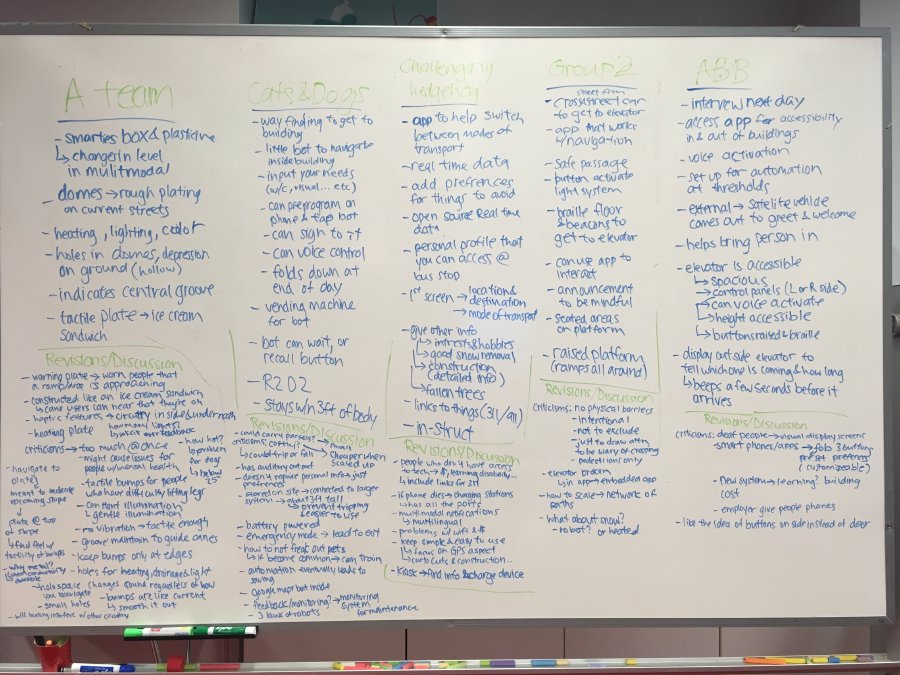 A team
- smarties box & plasticine
↳ changes in level
in mulitmodal
- domes → rough plating
on current streets
- heating, lighting, color
- holes in domes, depression
on ground (hollow)
- indicates central groove
- tactile plate → ice cream
sandwich
Revisions/Discussion
- warning plate → warn people that
a ramp/drop is approaching
- constructed like an ice cream sandwich
↳ cane users can hear that they're on
- haptic features → circuitry in side & underneath
- heating plate
how many layers?
criticisms → too much @ once
- might cause issues for
people w/mental health
- tactile bumps for people
who have difficulty lifting legs
- constant illumination
↳ gentle illumination
- no vibration → tactile enough
- groove maintain to guide canes
- keep bumps only at edges
- holes for heating, drainage & light
- holospace changes sound regardless of how
you navigate
- bumps are like current
- small holes
↳ smooth it out
- how hot?
↳ problem
for dogs
↳ below
25°
- navigate to
plate
meant to indicate
upcoming slope
plate @ top
of slope
↳ feel w/
tactility of bumps
- why metal?
durable
Cats & Dogs
- way finding to get to
building
- little bot to navigate
inside building
- input your needs
(w/c, visual... etc)
- can preprogram on
phone & tap bot
- can sign to it
- can voice control
- folds down at
end of day
- vending machine
for bot
- bot can wait, or
recall button
- R2D2
- stays w/n 3ft of body
Revisions/Discussion
- could carry parcels?
criticisms: costly?
↳ could trip or fall
cheaper when
scaled up
- has auditory out put
- doesn't require personal info, just
preferences
- stored on site → connected to larger
system
↳ about 3ft tall
↳ prevent tripping
& easier to use
- battery powered
- emergency mode → lead to exit
- how to not freak out pets
↳ become common → can train
- automation eventually leads to
saving
- Google maps but inside
- feedback/monitoring? → monitoring
system
for maintenance
- 3 laws of robots
Challenging
hedgehog
- app to help switch
between modes of
transport
- real time data
- add prefrences
for things to avoid
- open source real time
data
- personal profile that
you can access @
bus stop
- 1st screen → location &
destination
→ mode of transport
- give other info
↳ intrests & hobbies
↳ good snow removal
↳ construction
(detailed info)
↳ fallen trees
- links to things (311/911)
- in-struct
Revisions/Discussion
- people who don't have access
to tech → $, learning disability...
↳ include links for 311
- if phone dies → charging stations
↳ has all the ports
- multi modal notifications
↳ multilingual
- problems w/ wifi & $
- keep simple & easy to use
↳ focus on GPS aspect
↳ curb cuts & construction...
- Kiosk → find info & charge device
Group 2
start from
- cross street car
to get to elevator
- app that works
w/navigation
- safe passage
- button activate
light system
- braille floor
& beacons to
get to elevator
- can use app to
interact
- announcement
to be mindful
- seated areas
on platform
- raised platform
(ramps all around)
Revisions/Discussion
criticisms: no physical barriers
- intentional
- not to exclude
- just to draw attn
to be wary of crossing
pedestrians only
- elevator broken
↳ in app → embedded app
- how to scale → network of
paths
- what about snow?
- robot? or heated
ABB
- interview next day
- access app for accessibility
in & out of buildings
- voice activation
- set up for automation
at thresholds
- external → satelite vehicle
comes out to greet & welcome
- helps bring person in
- elevator is accessible
↳ spacious
↳ control panels (L or R side)
↳ can voice activate
↳ height accessible
↳ buttons raised & braille
- display outside elevator to
tell which one is coming & how long
↳ beeps a few seconds before it
arrives
Revisions/Discussion
criticisms: deaf people → visual display screens
- smart phones/apps → fobs 3 buttons
preset preferences
(customizeable)
- new system → learning? building
cost
- employer give people phones
- like the idea of buttons on side instead of door